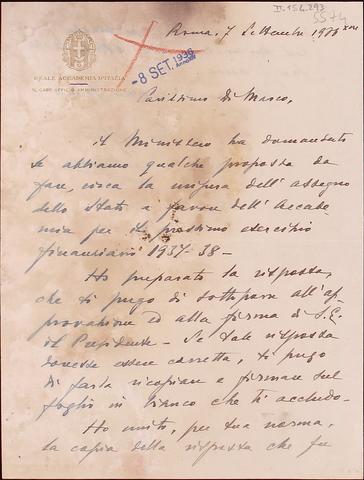 II. 15.4.293
SS+4
Roma, 7 Settembre 1936 XIV
-8 SET. 1936
REALE ACCADEMIA D'ITALIA
IL CAPO UFFICIO AMMINISTRAZIONE
Carissimo Di Marco,
il Ministero ha domandato
se abbiamo qualche proposta da
fare, circa la misura dell'assegno
dello Stato a favore dell'Accade-
mia per il prossimo esercizio
finanziario 1937-38 -
Ho preparato la risposta,
che ti prego di sottoporre all'ap-
provazione ed alla firma di S.E.
il Presidente - Se tale risposta
dovesse essere corretta, ti prego
di farla ricopiare e firmare sul
foglio in bianco che ti accludo -
Ho unito, per tua norma,
la copia della risposta che fu